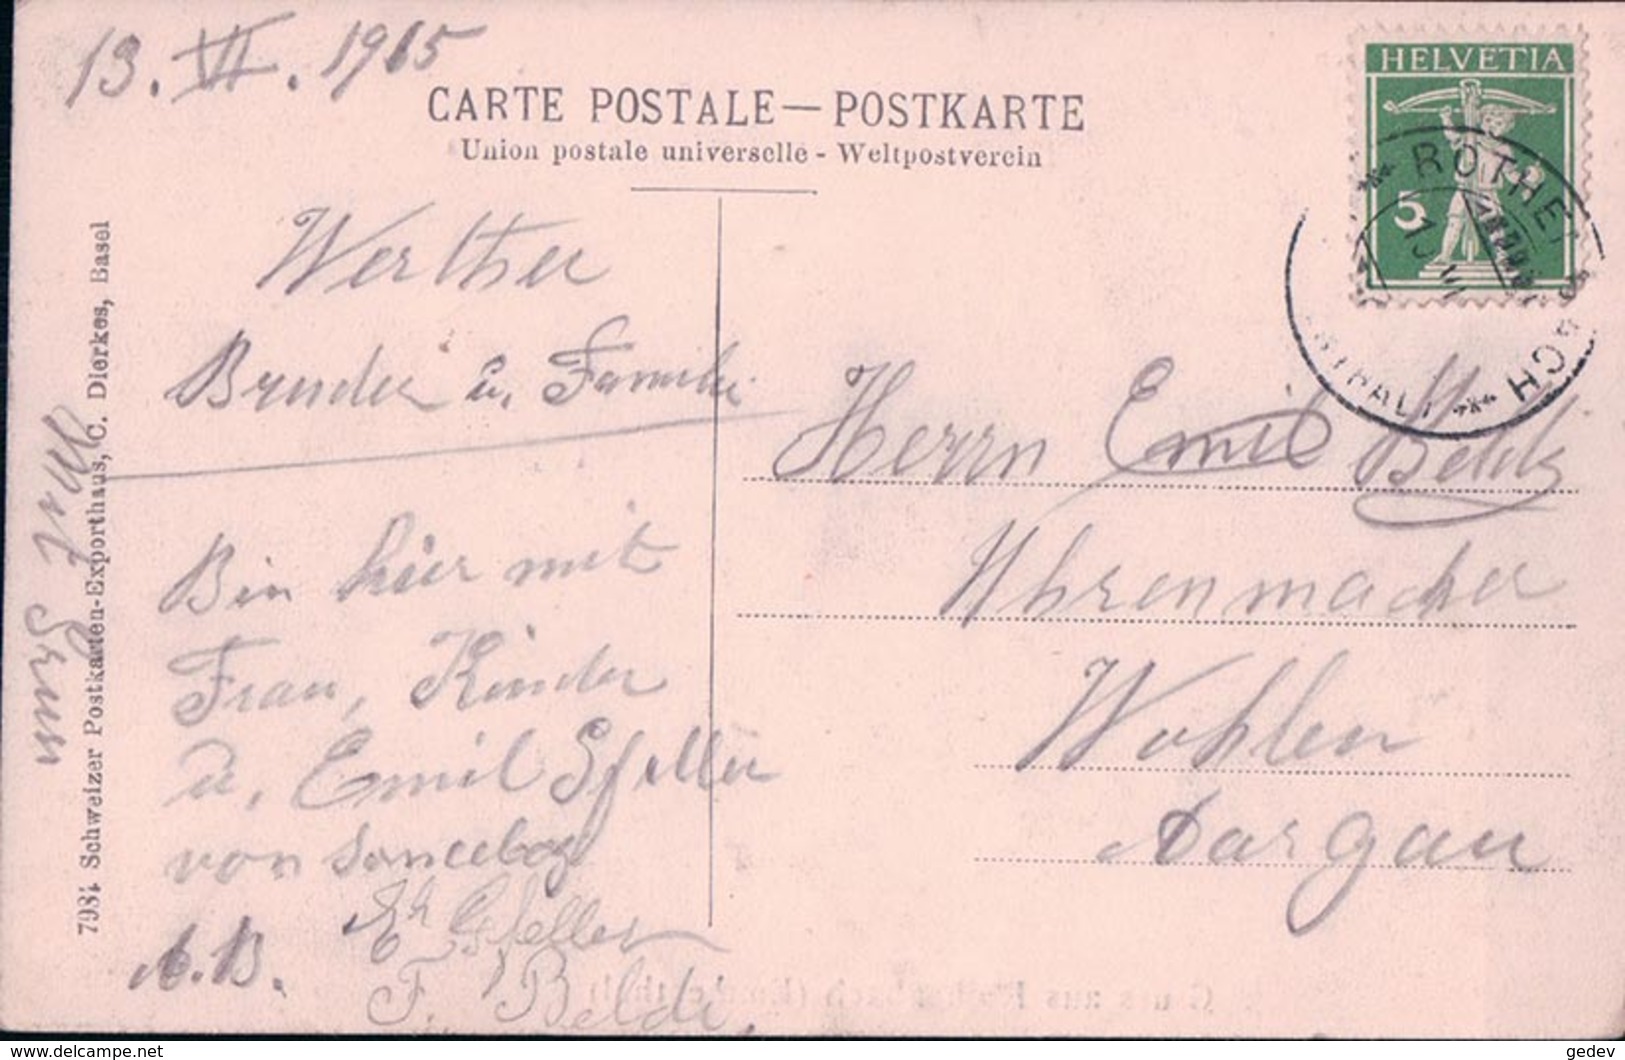 13. VI. 1915
CARTE POSTALE — POSTKARTE
Union postale universelle - Weltpostverein
HELVETIA
5
ROTHE
BACH
Werther
Bruder u. Familie
Bin hier mit
Frau, Kinder
u. Emil Gfeller
von Sonceboz
A.B.
Eh Gfeller
F. Beldi
Herrn Emil
Uhrenmacher
Wohlen
Aargau
7934 Schweizer Postkarten-Exporthaus, C. Dierkes, Basel
Gruss aus Rothenbach (Emmenthal)
gedev